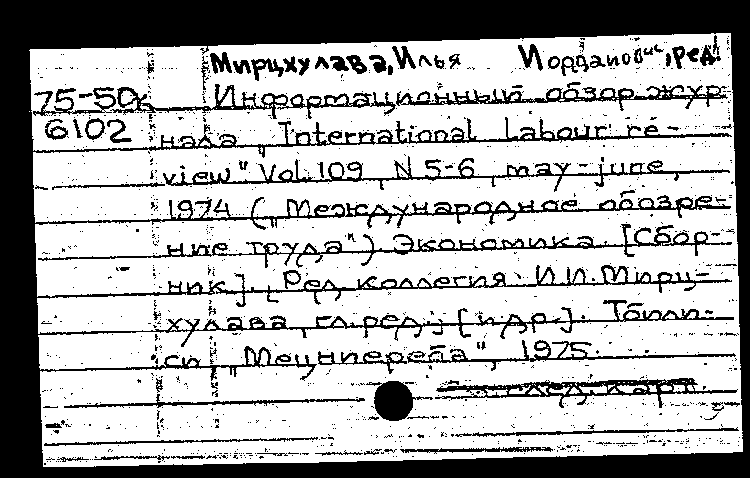 Мирцхулава, Илья Иорданович, ред.
75-50к Информационный обзор жур-
6102 нала „International Labour re-
view" Vol. 109, N 5-6, may-june,
1974 („Международное обозре-
ние труда"). Экономика. [Сбор-
ник]. [Ред. коллегия: И.И. Мирц-
хулава, гл. ред.; [и др.]. Тбили-
си, „Мецниереба", 1975.
след. карт.